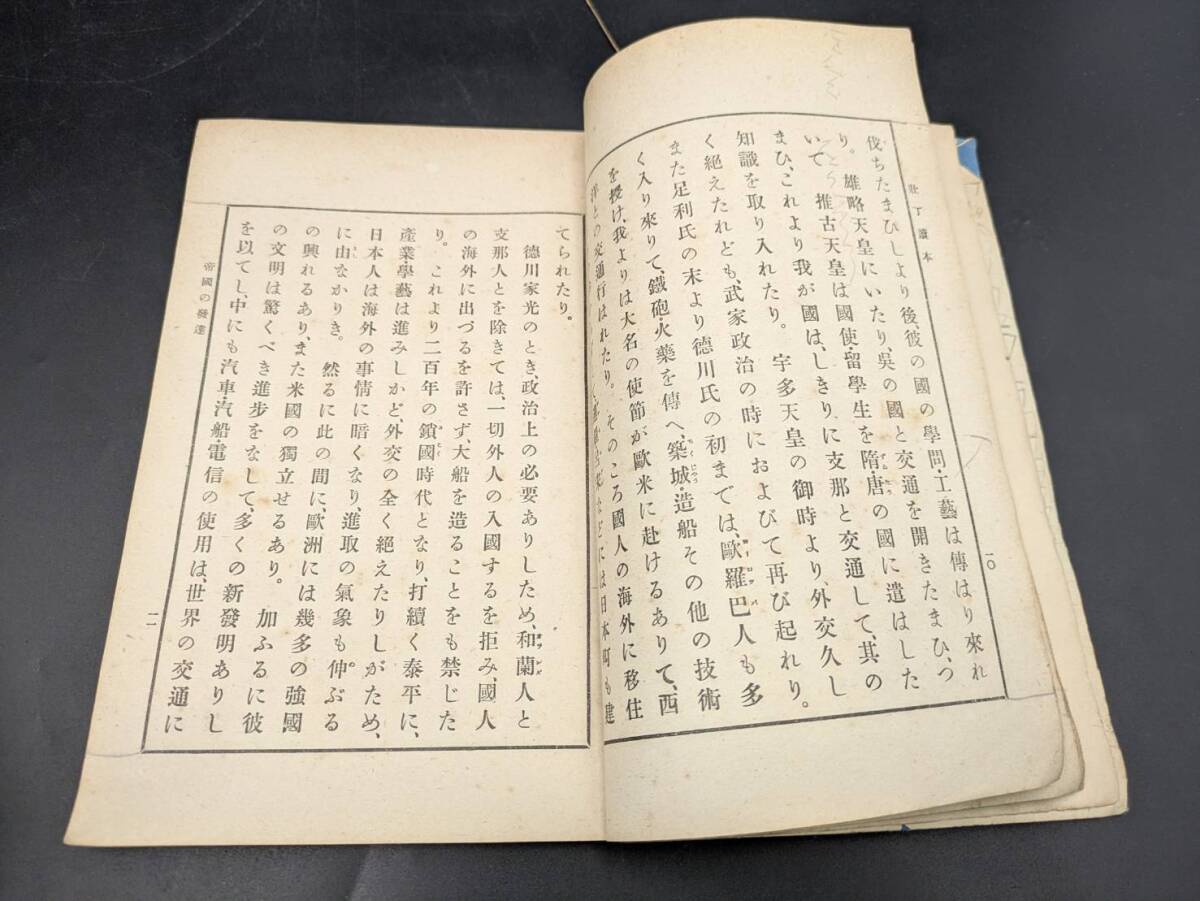 壯丁讀本
一〇
伐ちたまひしより後、彼の國の學問・工藝は傳はり來れ
り。雄略天皇にいたり、吳の國と交通を開きたまひ、つ
いて推古天皇は國使・留學生を隋・唐の國に遣はした
まひ、これより我が國は、しきりに支那と交通して、其の
知識を取り入れたり。宇多天皇の御時より、外交久し
く絕えたれども、武家政治の時におよびて再び起れり。
また足利氏の末より德川氏の初までは、歐羅巴人も多
く入り來りて、鐵砲・火藥を傳へ、築城・造船その他の技術
を授け、我よりは大名の使節が歐米に赴けるありて、西
洋との交通行はれたり。そのころ國人の海外に移住
には日本町も建
てられたり。
德川家光のとき、政治上の必要ありしため、和蘭人と
支那人とを除きては、一切外人の入國するを拒み、國人
の海外に出づるを許さず、大船を造ることをも禁じた
り。これより二百年の鎖國時代となり、打續く泰平に、
產業・學藝は進みしかど、外交の全く絕えたりしがため、
日本人は海外の事情に暗くなり、進取の氣象も伸ぶる
に由なかりき。然るに此の間に、歐洲には幾多の強國
の興れるあり、また米國の獨立せるあり。加ふるに彼
の文明は驚くべき進步をなして、多くの新發明ありし
を以てし、中にも汽車・汽船・電信の使用は、世界の交通に
帝國の發達
一一